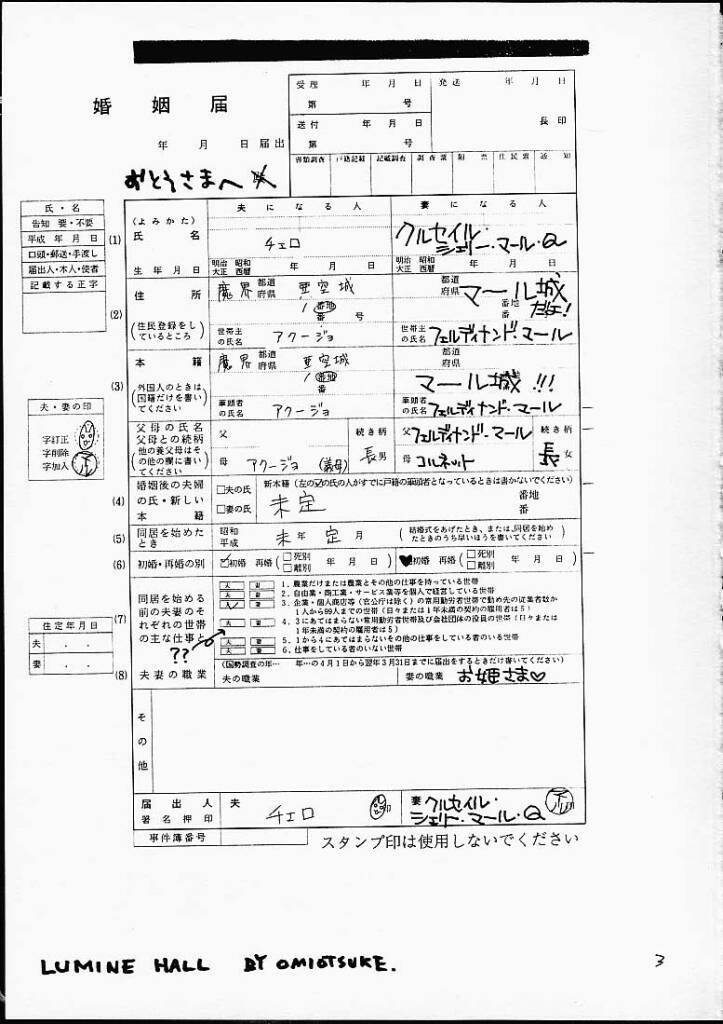 婚姻届
年 月 日 届出
受理 年 月 日
第 号
送付 年 月 日
第 号
発送 年 月 日
長印
書類調査 戸籍記載 記載調査 調査票 附票 住民票 通知
おとうさまへ
氏・名
告知 要・不要
平成 年 月 日
口頭・郵送・手渡し
届出人・本人・使者
記載する正字
夫になる人 妻になる人
(1) (よみかた)
氏名 チェロ クルセイル・
シェリー・マール・Q
生年月日 明治 昭和 大正 西暦 年 月 日 明治 昭和 大正 西暦 年 月 日
(2) 住所 魔界 都道府県 亜空城 都道府県 マール城
1 番地 番 号 番地 番 だよ!
(住民登録をしているところ) 世帯主の氏名 アクージョ 世帯主の氏名 フェルディナンド・マール
(3) 本籍 魔界 都道府県 亜空城 都道府県
1 番地 番 マール城!!!
(外国人のときは国籍だけを書いてください) 筆頭者の氏名 アクージョ 筆頭者の氏名 フェルディナンド・マール
夫・妻の印
字訂正
字削除
字加入
父母の氏名
父母との続柄
(他の養父母はその他の欄に書いてください)
父 続き柄 父 フェルディナンド・マール 続き柄
母 アクージョ (義母) 長男 母 コルネット 長女
(4) 婚姻後の夫婦の氏・新しい本籍
□夫の氏 □妻の氏
新本籍(左の☑の氏の人がすでに戸籍の筆頭者となっているときは書かないでください)
未定 番地 番
(5) 同居を始めたとき 昭和 平成 未年 定月 (結婚式をあげたとき、または、同居を始めたときのうち早いほうを書いてください)
(6) 初婚・再婚の別 ☑初婚 再婚 (□死別 □離別 年 月 日) ♥初婚 再婚 (□死別 □離別 年 月 日)
(7) 同居を始める前の夫妻のそれぞれの世帯の主な仕事と
??
夫 妻 1. 農業だけまたは農業とその他の仕事を持っている世帯
夫 妻 2. 自由業・商工業・サービス業等を個人で経営している世帯
夫 妻 3. 企業・個人商店等(官公庁は除く)の常用勤労者世帯で勤め先の従業者数が1人から99人までの世帯(日々または1年未満の契約の雇用者は5)
夫 妻 4. 3にあてはまらない常用勤労者世帯及び会社団体の役員の世帯(日々または1年未満の契約の雇用者は5)
夫 妻 5. 1から4にあてはまらないその他の仕事をしている者のいる世帯
夫 妻 6. 仕事をしている者のいない世帯
住定年月日
夫 ・ ・
妻 ・ ・
(8) 夫妻の職業 (国勢調査の年… 年…の4月1日から翌年3月31日までに届出をするときだけ書いてください)
夫の職業 妻の職業 お姫さま♡
その他
届出人 署名押印 夫 チェロ 印 妻 クルセイル・
シェリー・マール・Q 印
事件簿番号
スタンプ印は使用しないでください
LUMINE HALL BY OMIOTSUKE.
3